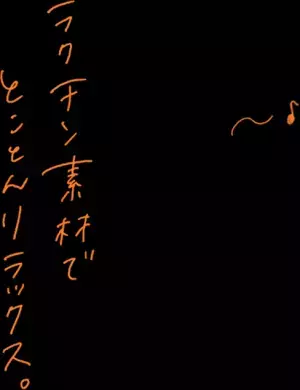 ラクチン素材で
とことんリラックス。
〜♪